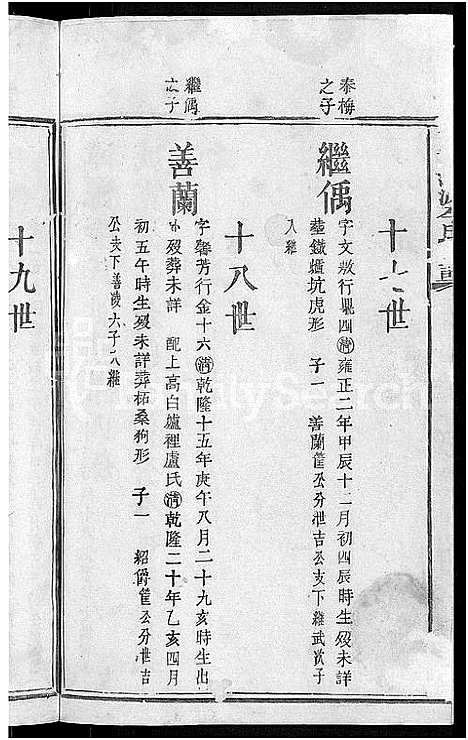 十七世
泰梅
之子
繼偊
字文敖行 四 清 雍正二年甲辰十二月初四辰時生歿未詳
葬鐵 坑虎形 子一 善蘭 公分 吉公支下繼武次子
入繼
十八世
繼偊
之子
善蘭
字馨芳行金十六 清 乾隆十五年庚午八月二十九亥時生出
歿葬未詳 配上高白爐裡盧氏 清 乾隆二十年乙亥四月
初五午時生歿未詳葬柘桑狗形 子一 紹爵 公分世吉
公支下善 六子入繼
十九世
FamilySearch